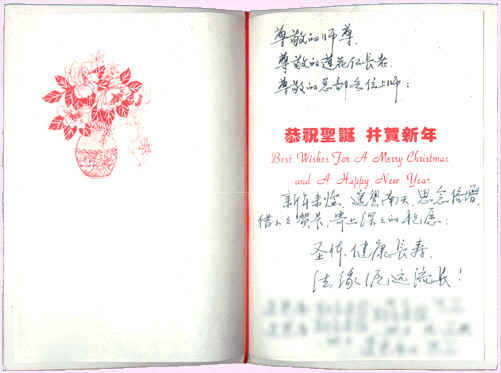 尊敬的师尊、
尊敬的莲花仁长者、
尊敬的总部各位上师：
恭祝聖誕 并賀新年
Best Wishes For A Merry Christmas
and A Happy New Year
新年来临，遥望南天，思念倍增，
借小小贺卡，寄上深深的祝愿：
圣体健康长寿，
法缘源远流长！